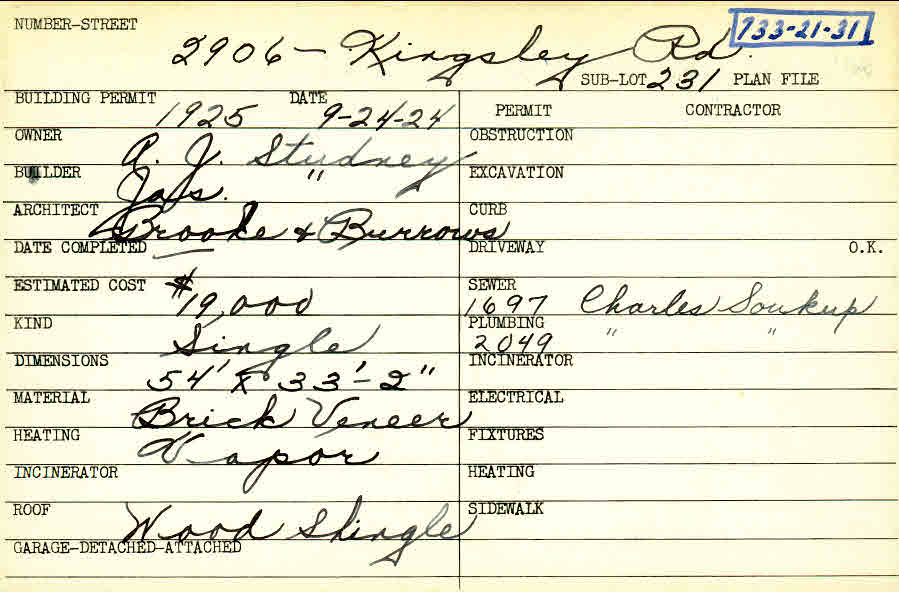 NUMBER-STREET 733-21-31
2906- Kingsley Rd.
SUB-LOT 231 PLAN FILE
BUILDING PERMIT 1925 DATE 9-24-24
PERMIT CONTRACTOR
OWNER A. J. Studney
OBSTRUCTION
BUILDER Jas. "
EXCAVATION
ARCHITECT Brooke & Burrows
CURB
DATE COMPLETED
DRIVEWAY O.K.
ESTIMATED COST $19,000
SEWER 1697 Charles Soukup
KIND Single
PLUMBING 2049 " "
DIMENSIONS 54' x 33'-2"
INCINERATOR
MATERIAL Brick Veneer
ELECTRICAL
HEATING Vapor
FIXTURES
INCINERATOR
HEATING
ROOF Wood Shingle
SIDEWALK
GARAGE-DETACHED-ATTACHED